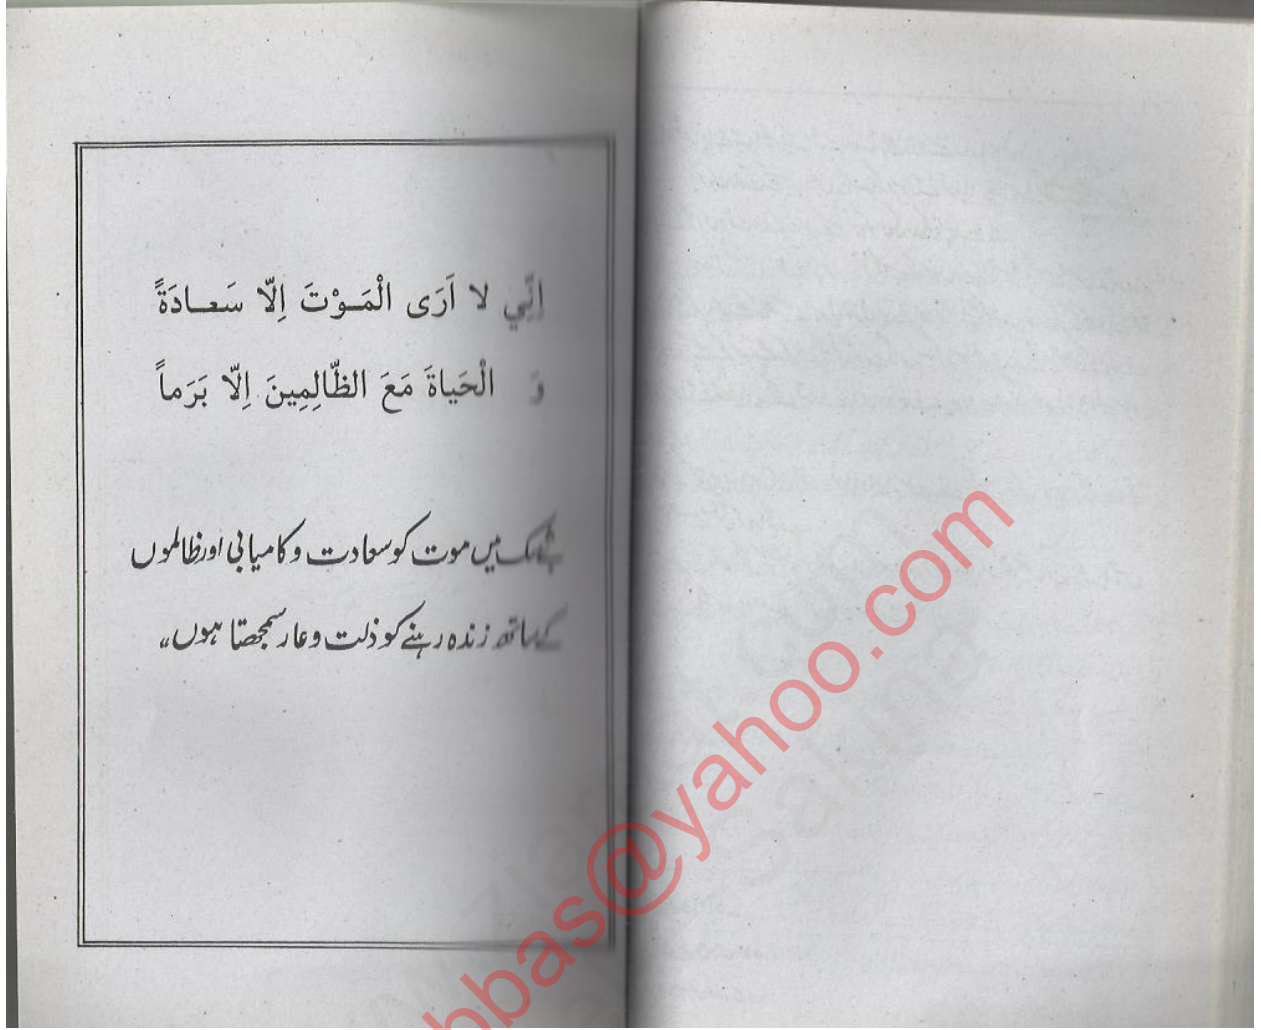 اِنِّي لا اَرَى الْمَـوْتَ اِلّا سَعـادَةً
وَ الْحَياةَ مَعَ الظّالِمِينَ اِلّا بَرَماً
میں موت کو سعادت و کامیابی اور ظالموں
کے ساتھ زندہ رہنے کو ذلت و عار سمجھتا ہوں“
bbas@yahoo.com